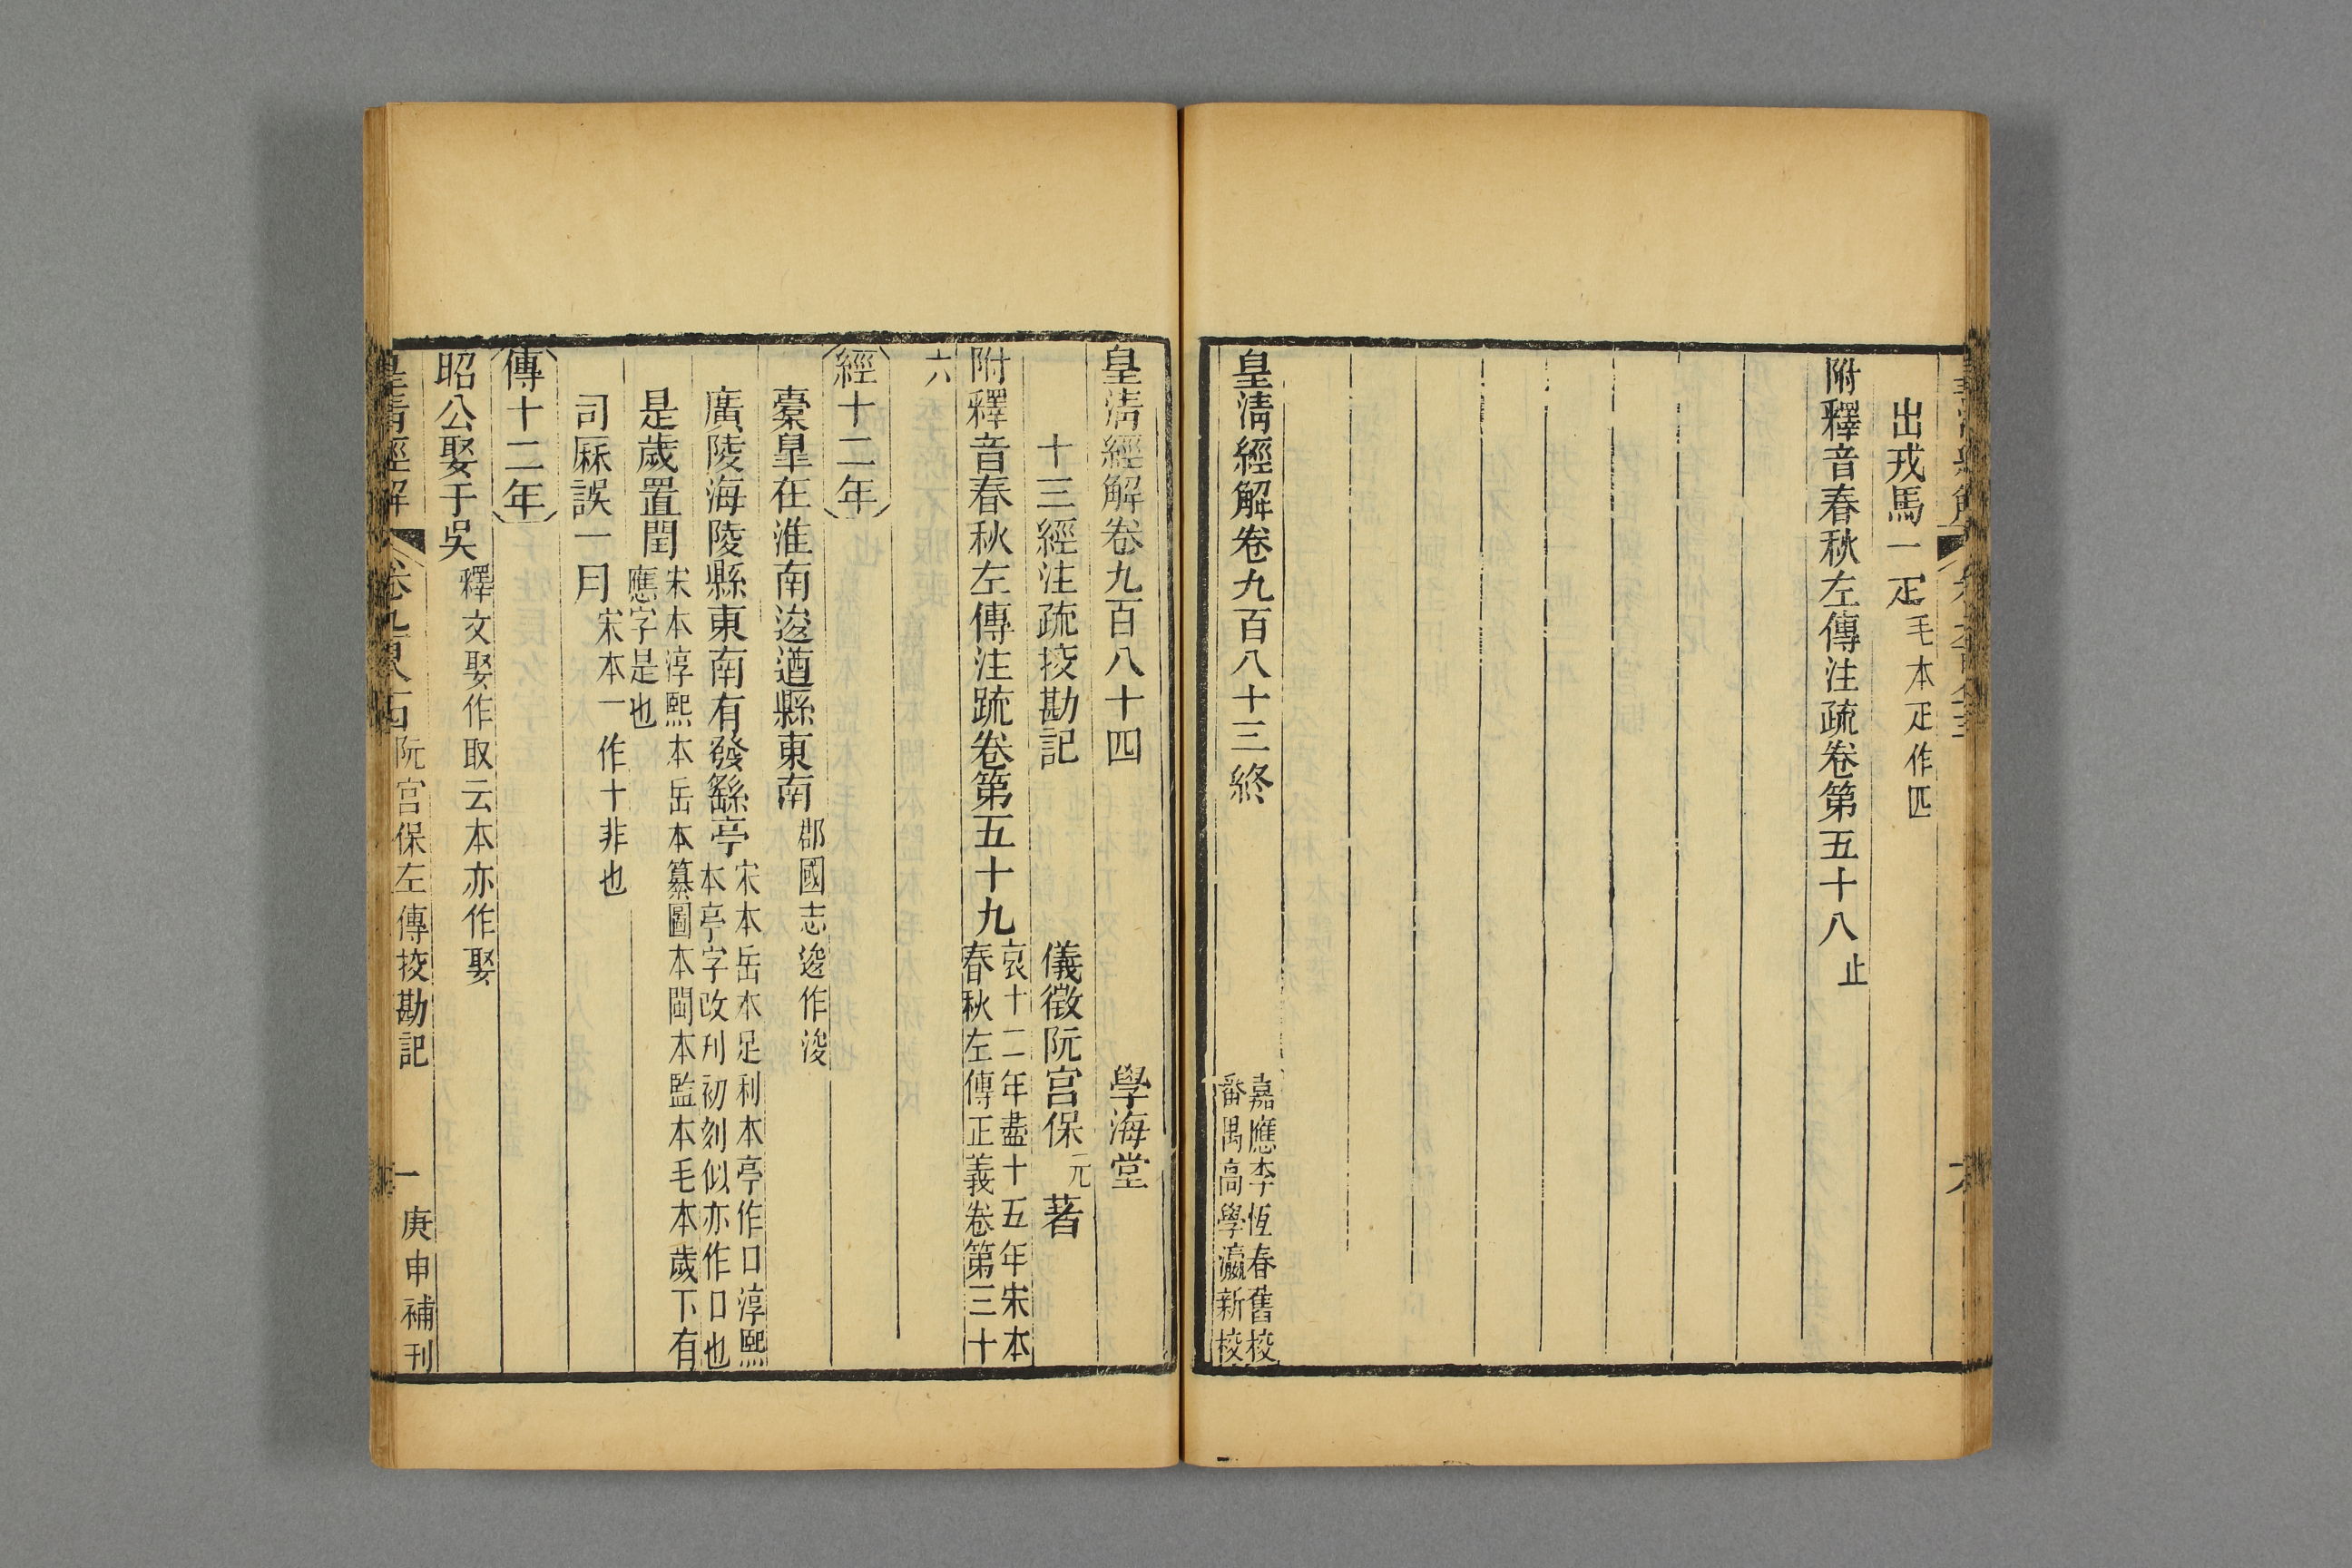 出戎馬一疋毛本疋作匹
附釋音春秋左傳注疏卷第五十八止
皇淸經解卷九百八十三終
嘉應李恆春舊校
番禺高學瀛新校
皇淸經解卷九百八十四
學海堂
十三經注疏挍勘記
儀徵阮宮保元著
附釋音春秋左傳注疏卷第五十九
哀十二年盡十五年宋本
春秋左傳正義卷第三十
六
經十二年
橐皐在淮南逡遒縣東南郡國志逡作浚
廣陵海陵縣東南有發繇亭
宋本岳本足利本亭作口淳熙
本亭字改刋初刻似亦作口也
是歲置閏
宋本淳熙本岳本纂圖本閩本監本毛本歲下有
應字是也
司厤誤一月宋本一作十非也
傳十二年
昭公娶于吳釋文娶作取云本亦作娶
皇淸經解
卷九百八十四
阮宮保左傳挍勘記
一
庚申補刋